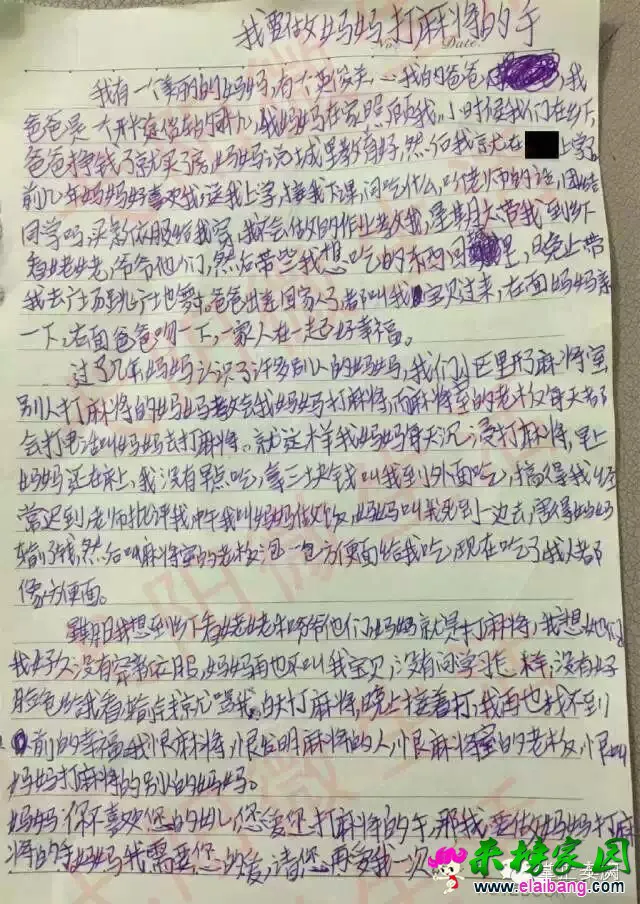 我要做妈妈打麻将的手
No.
Date.
我有一个美丽的妈妈,有个英俊 我的爸爸 我
爸爸是大卡车货车的司机,我妈妈在家照顾我,小时候我们在乡下,
爸爸挣钱了就买了房,妈妈说城里教育好,然后我就在 上学。
前几年妈妈好喜欢我,送我上学,接我下课,问吃什么,听老师的话,团结
同学吗,买新衣服给我穿,我不会做的作业教我,星期六带我到乡下
看姥姥,爷爷他们,然后带些我想吃的东西回 里,晚上带
我去广场跳广场舞。爸爸出差回家了,都叫我宝贝过来,右面妈妈亲
一下,左面爸爸吻一下,一家人在一起好幸福。
过了几年,妈妈认识了许多别人的妈妈,我们小区里开了麻将室
别人打麻将的妈妈教会我妈妈打麻将,而麻将室的老板每天都
会打电话叫妈妈去打麻将。就这样我妈妈每天沉浸打麻将,早上
妈妈还在床上,我没有早点吃,拿三块钱叫我到外面吃,搞得我经
常迟到老师批评我,中午我叫妈妈做饭,妈妈叫我死到一边去,害得妈妈
输了钱,然后叫麻将室的老板泡一包方便面给我吃,现在吃了我人都
像方便面。
星期日我想到乡下看姥姥和爷爷他们,妈妈就是打麻将,我想他们
我好久没有穿新衣服,妈妈再也不叫我宝贝,没有问学习怎样,没有好
脸色给我看,输点钱就骂我。白天打麻将,晚上接着打,我再也找不到
前的幸福。我恨麻将,恨发明麻将的人,恨麻将室的老板,恨叫
妈妈打麻将的别人的妈妈。
妈妈你不喜欢您的女儿,您爱您打麻将的手,那我要做妈妈打麻
将的手,妈妈我需要您的爱,请您再爱我一次
来榜家园
www.elaibang.com